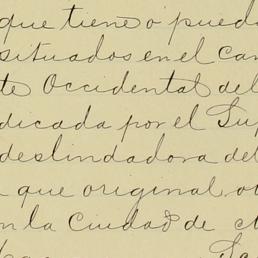 que tiene o pueda
situados en el Can
te Occidental del
dicada por el Sup
deslindadora del
que original o
en la Ciudad de M